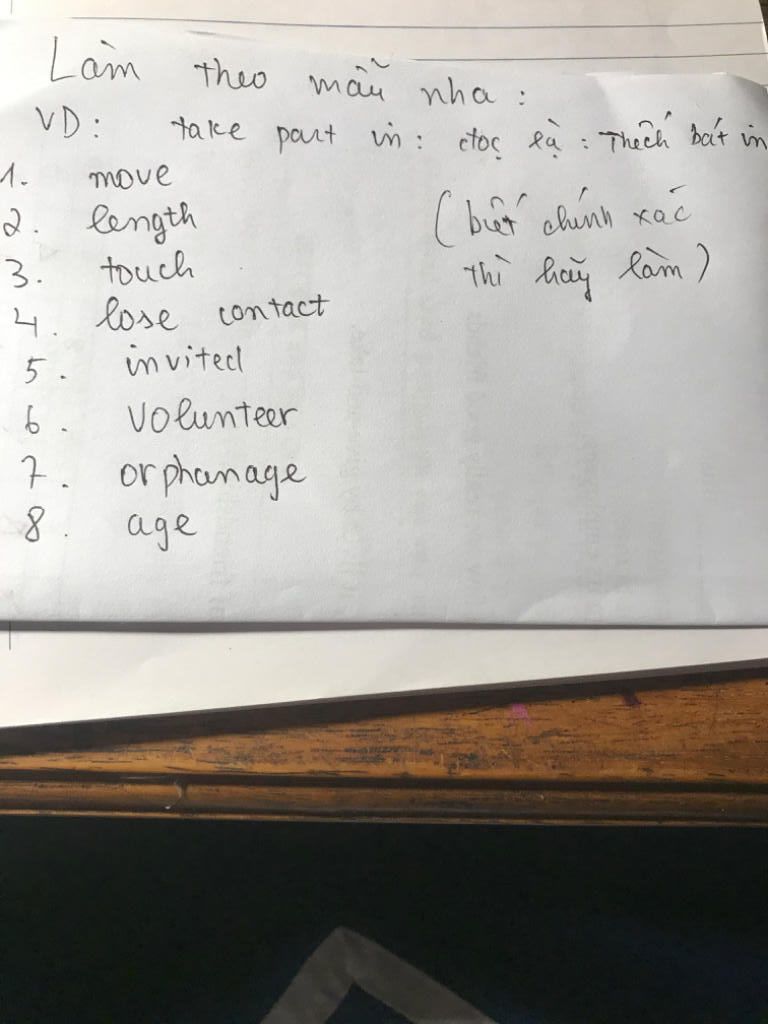 Làm theo mẫu nha :
VD : take part in : đọc là : Thếch bát in
1. move
2. length
3. touch
4. lose contact
5. invited
6. volunteer
7. orphanage
8. age
( biết chính xác
thì hãy làm )